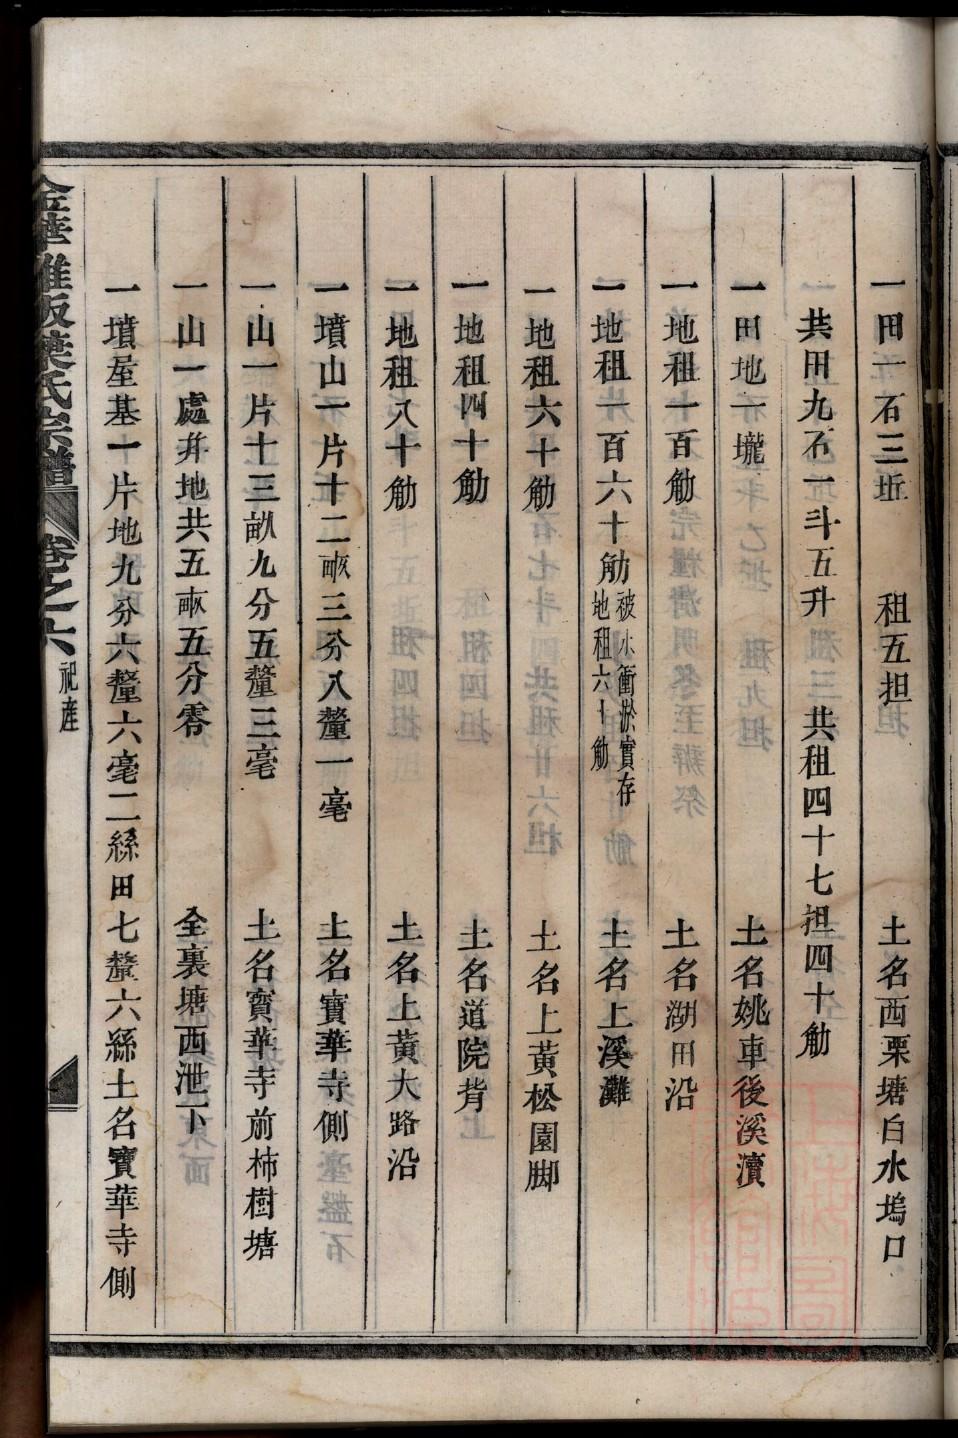 一田一石三坵 租五担 土名西栗塘白水塢口
共田九石一斗五升 共租四十七担四十觔
一田地一壠 土名姚車後溪瀆
一地租一百觔 土名湖田沿
一地租一百六十觔 被水衝淤實存地租六十觔 土名上溪灘
一地租六十觔 土名上黃松園脚
一地租四十觔 土名道院背
一地租八十觔 土名上黃大路沿
一墳山一片十二畝三分八釐一毫 土名寶華寺側
一山一片十三畝九分五釐三毫 土名寶華寺前柿樹塘
一山一處幷地共五畝五分零 全裏塘西泄下
一墳屋基一片地九分六釐六毫二絲田七釐六絲土名寶華寺側
金華雅畈葉氏宗譜 卷之六 祀產